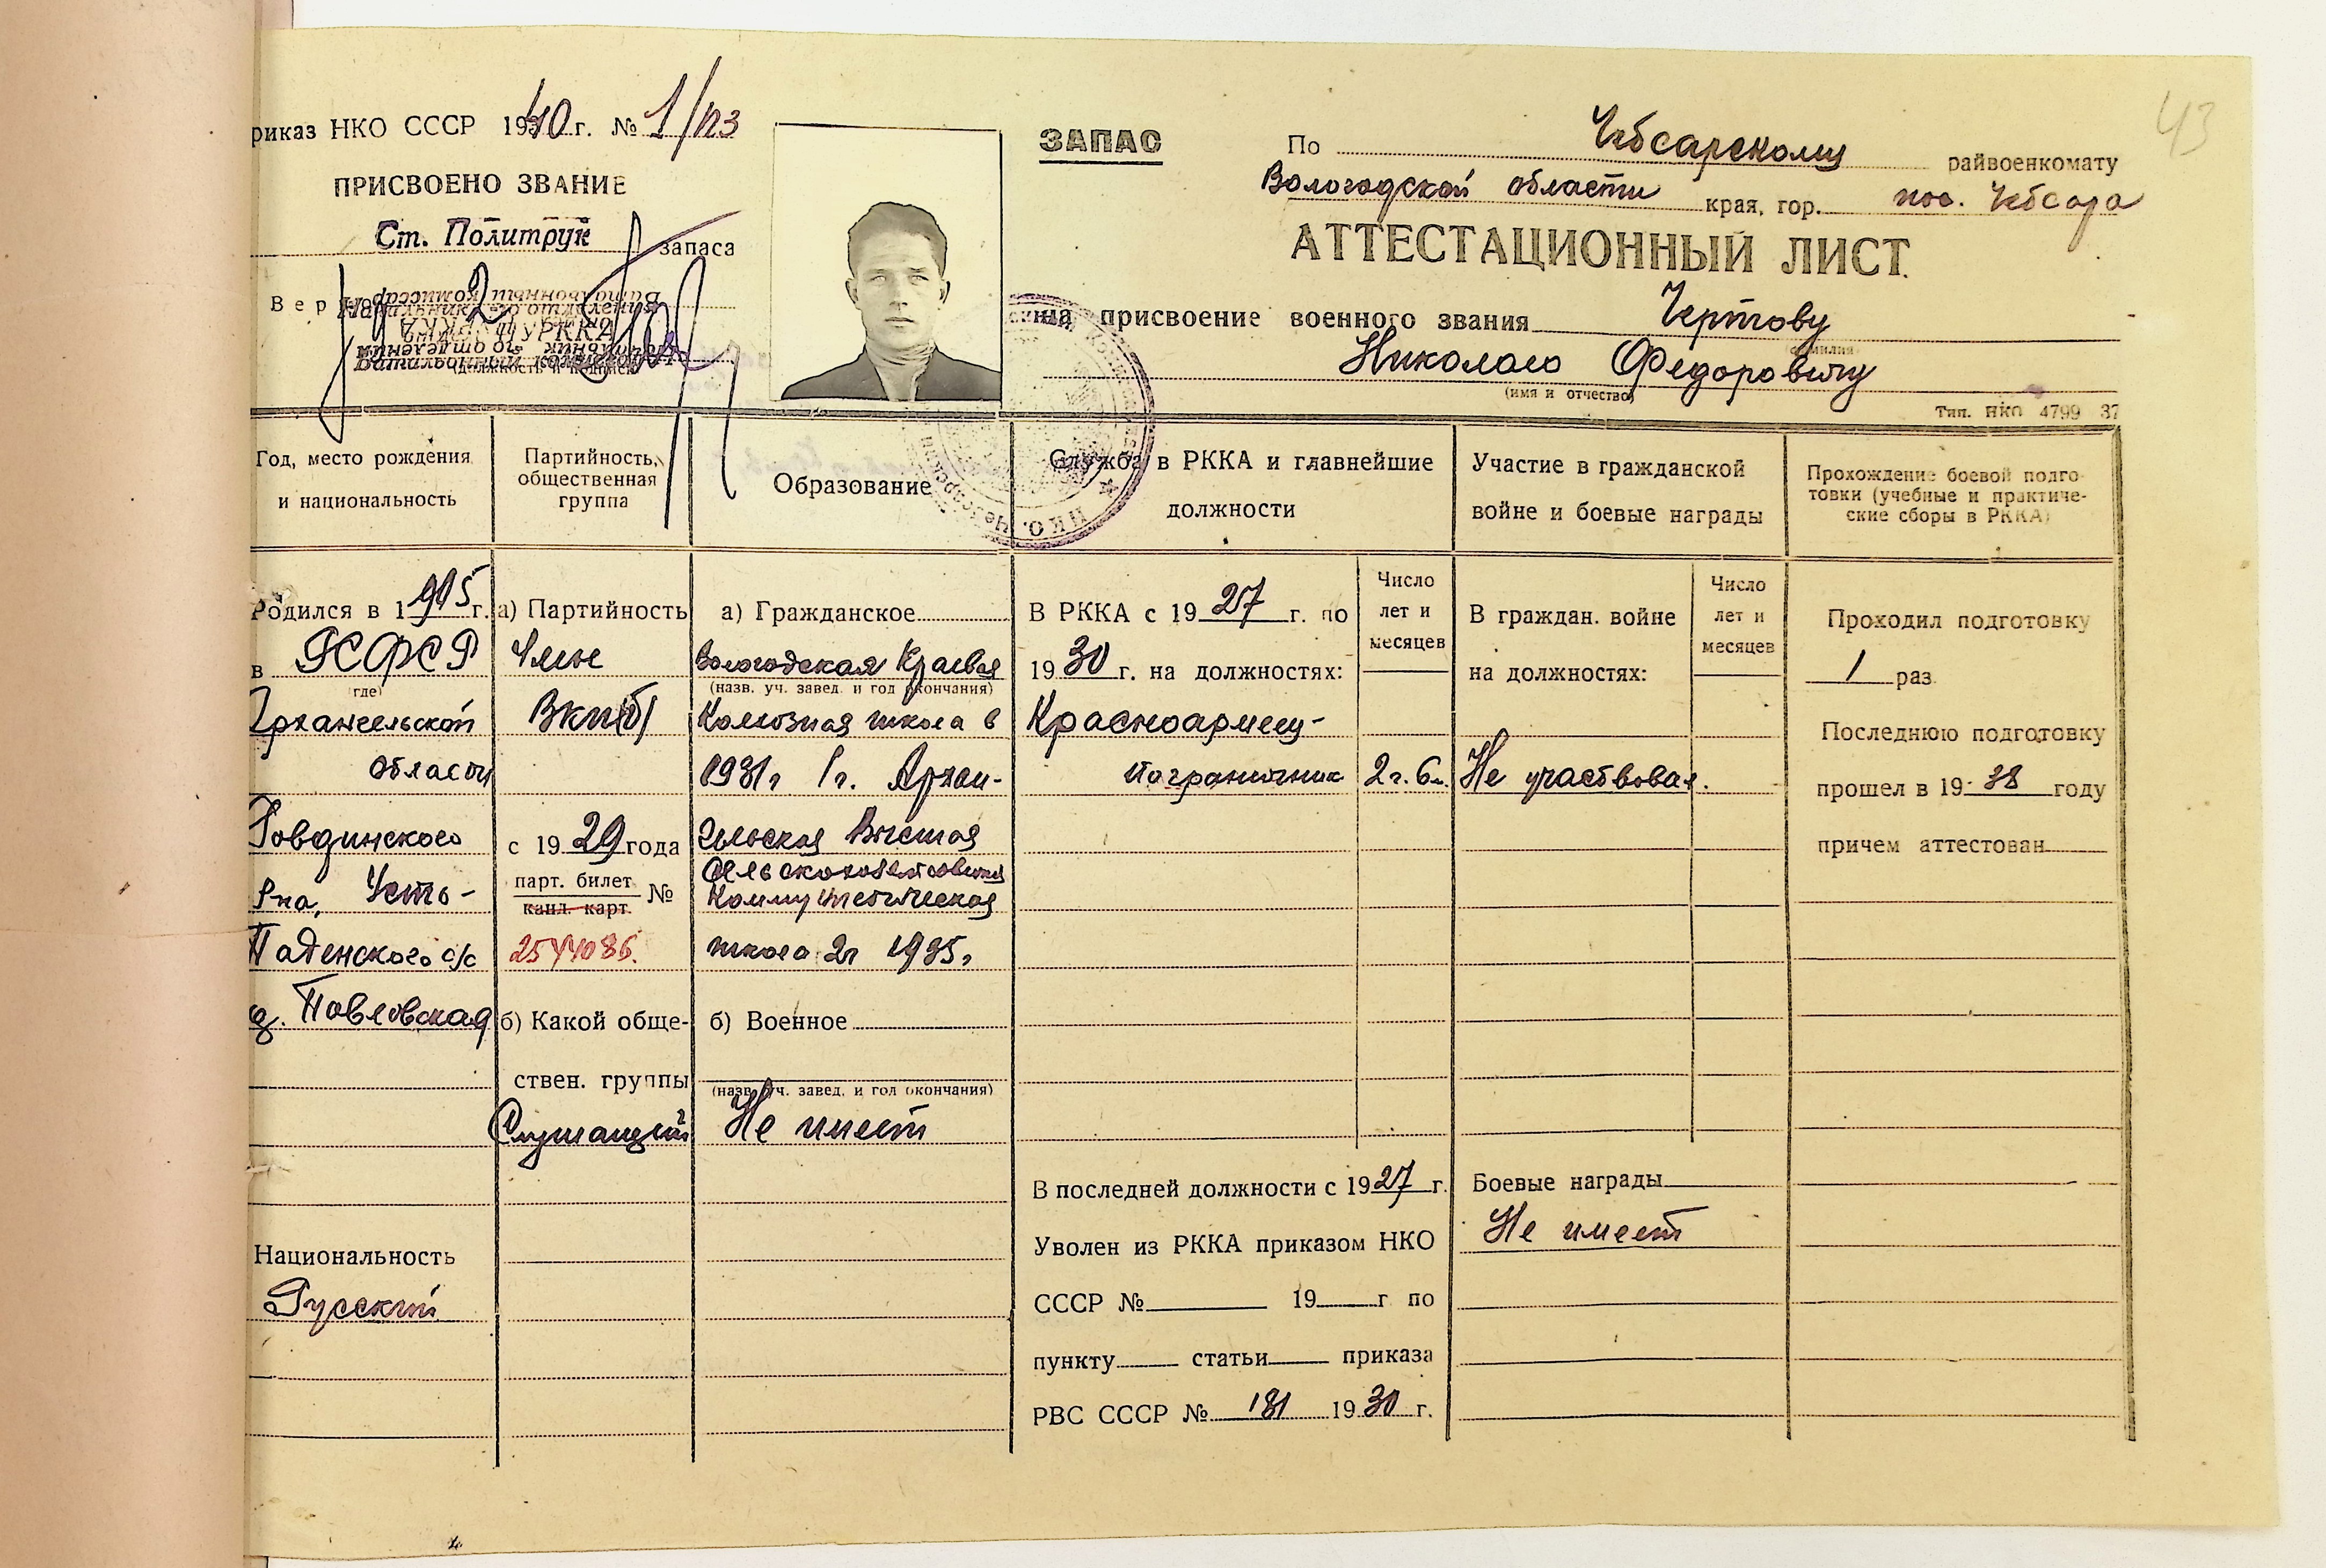 риказ НКО СССР 1940 г. № 1/пз
ПРИСВОЕНО ЗВАНИЕ
Ст. Политрук
запаса
Вер
43
ЗАПАС
По Чебсарскому райвоенкомату
Вологодской области края, гор. пос. Чебсара
АТТЕСТАЦИОННЫЙ ЛИСТ
на присвоение военного звания Чертову
фамилия
Николаю Федоровичу
(имя и отчество)
Тип. НКО 4799 37
Год, место рождения
и национальность
Родился в 1915 г.
в РСФСР
(где)
Архангельской
области
Ровдинского
Р-на, Усть-
Паденского с/с
д. Павловская
Национальность
Русский
Партийность,
общественная
группа
а) Партийность
Член
ВКП(б)
с 1929 года
парт. билет №
канд. карт.
2544086.
б) Какой обще-
ствен. группы
Служащий
Образование
а) Гражданское
Вологодская Краевая
(назв. уч. завед. и год окончания)
Колхозная школа в
1931 г 1 г. Архан-
гельская Высшая
Сельскохозяйственная
Коммунистическая
школа 2 г 1935 г
б) Военное
(назв. уч. завед. и год окончания)
Не имеет
Служба в РККА и главнейшие
должности
В РККА с 1927 г. по
1930 г. на должностях:
Число
лет и
месяцев
Красноармеец-
пограничник 2 г. 6 м.
В последней должности с 1927 г.
Уволен из РККА приказом НКО
СССР № 19 г по
пункту статьи приказа
РВС СССР № 181 1930 г.
Участие в гражданской
войне и боевые награды
В граждан. войне
на должностях:
Число
лет и
месяцев
Не участвовал.
Боевые награды
Не имеет
Прохождение боевой подго-
товки (учебные и практиче-
ские сборы в РККА)
Проходил подготовку
1 раз
Последнюю подготовку
прошел в 1938 году
причем аттестован